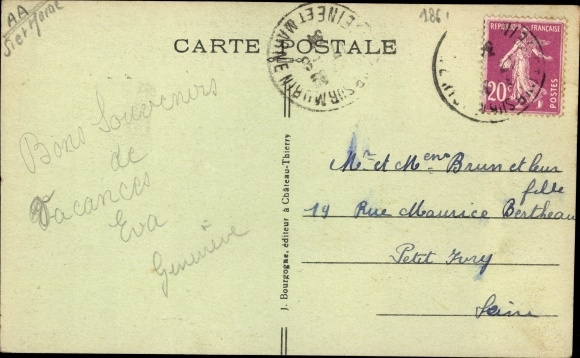 AA
S et Marne
186
CARTE POSTALE
SEINE ET MARNE
REPUBLIQUE FRANÇAISE
20c
POSTES
Bons Souvenirs
de
Vacances
Eva
Geneviève
J. Bourgogne, éditeur à Château-Thierry
Mr et Mme Brun et leur
fille
19 Rue Maurice Bertheau
Petit Ivry
Seine